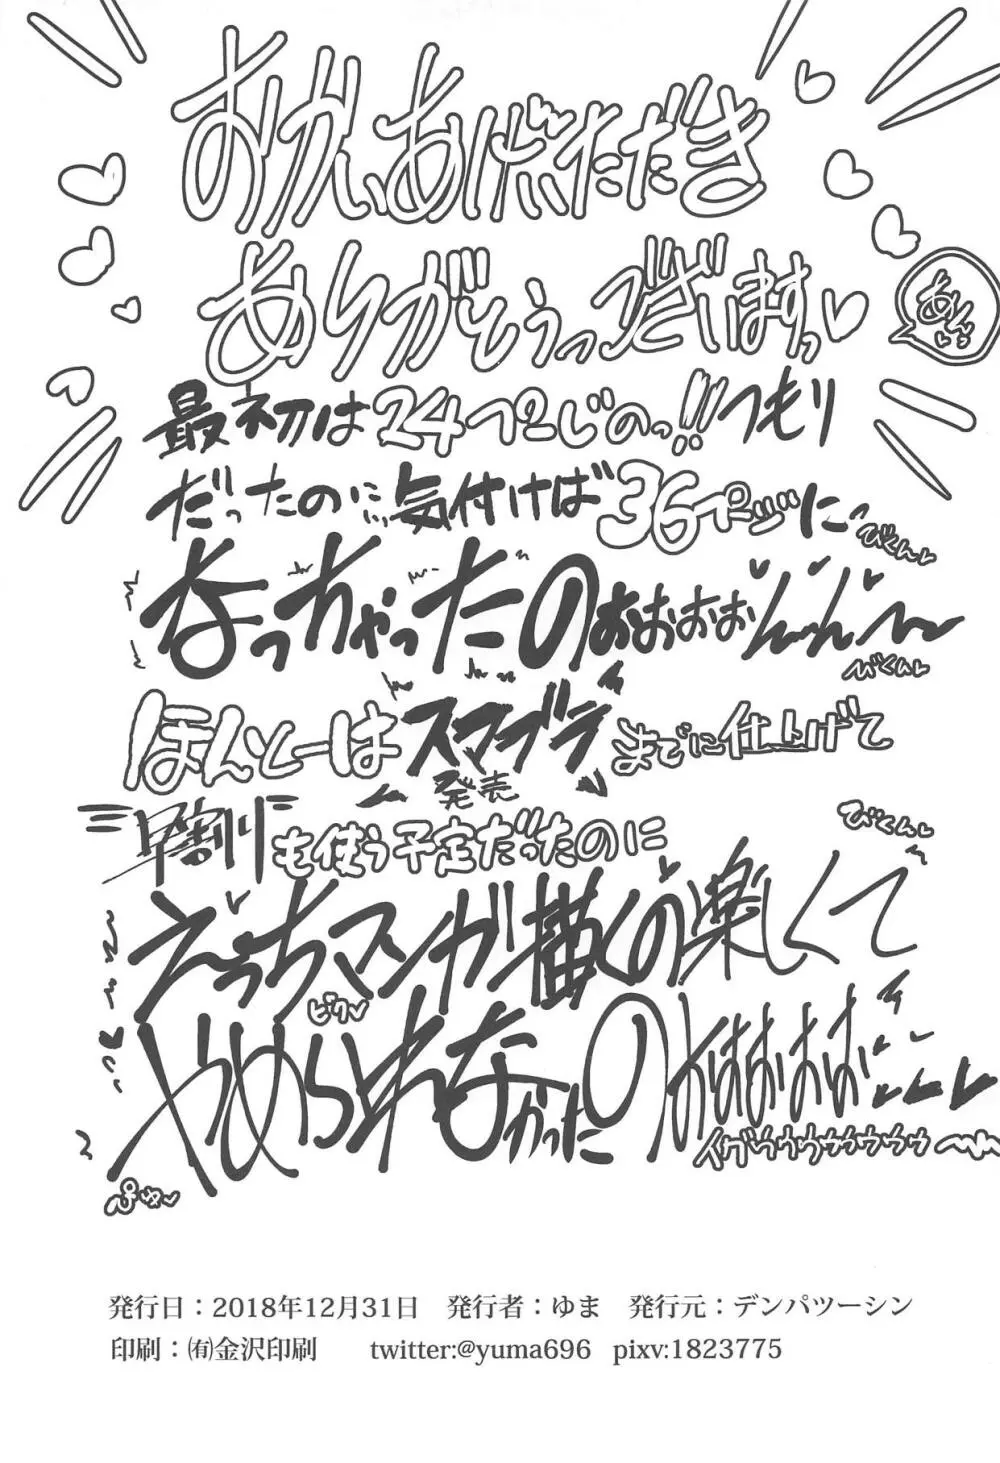 おかいあげいただき
ありがとうっございますっ♡
あんっ
最初は24ページのっ!!つもり
だったのに…気付けば36ページに
びくんっ
なっちゃったのぉおおおんんん~
びくんっ
ほんとーはスマブラまでに仕上げて
発売
早割りも使う予定だったのに
びくんっ
えっちマンガ描くの楽しくて
ビクッ
やめられなかったのぉほおおおお
イグゥウウウゥゥゥゥゥ
ぷゅっ
発行日:2018年12月31日 発行者:ゆま 発行元:デンパツーシン
印刷:㈲金沢印刷 twitter:@yuma696 pixv:1823775